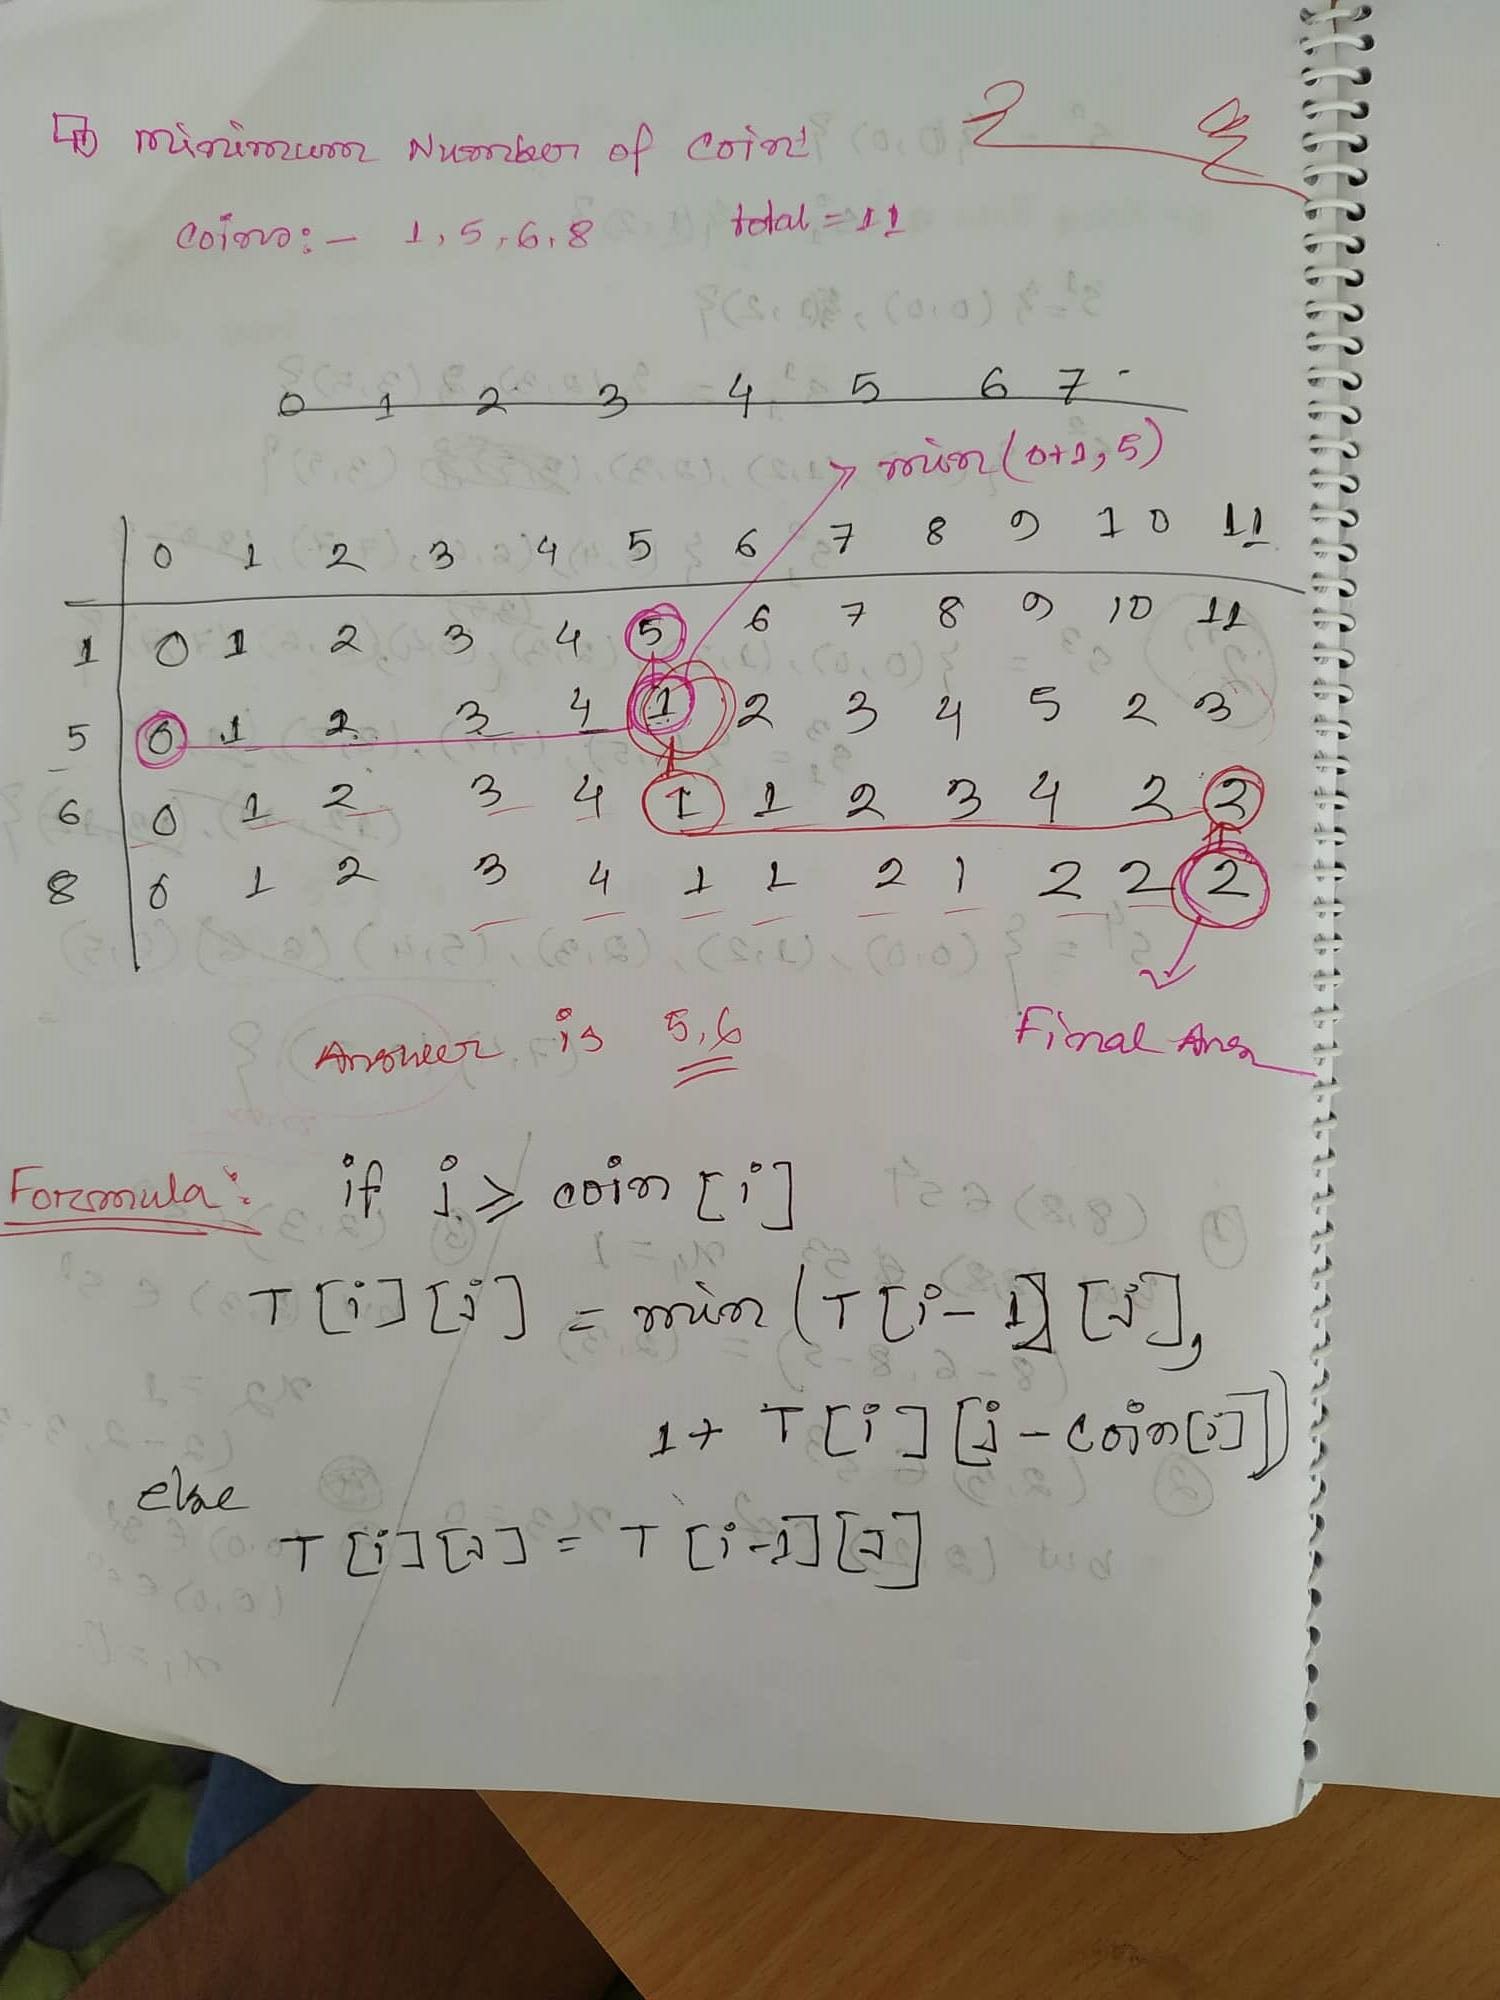 Minimum Number of Coin
Coins:- 1, 5, 6, 8 total = 11
0 1 2 3 4 5 6 7
min(0+1, 5)
0 1 2 3 4 5 6 7 8 9 10 11
1 0 1 2 3 4 5 6 7 8 9 10 11
5 0 1 2 3 4 1 2 3 4 5 2 3
6 0 1 2 3 4 1 1 2 3 4 2 2
8 0 1 2 3 4 1 1 2 1 2 2 2
Answer is 5,6
Final Ans
Formula: if j ≥ coin [i]
T[i][j] = min (T[i-1][j],
1+ T[i][j-coin[i]])
else
T[i][j] = T[i-1][j]